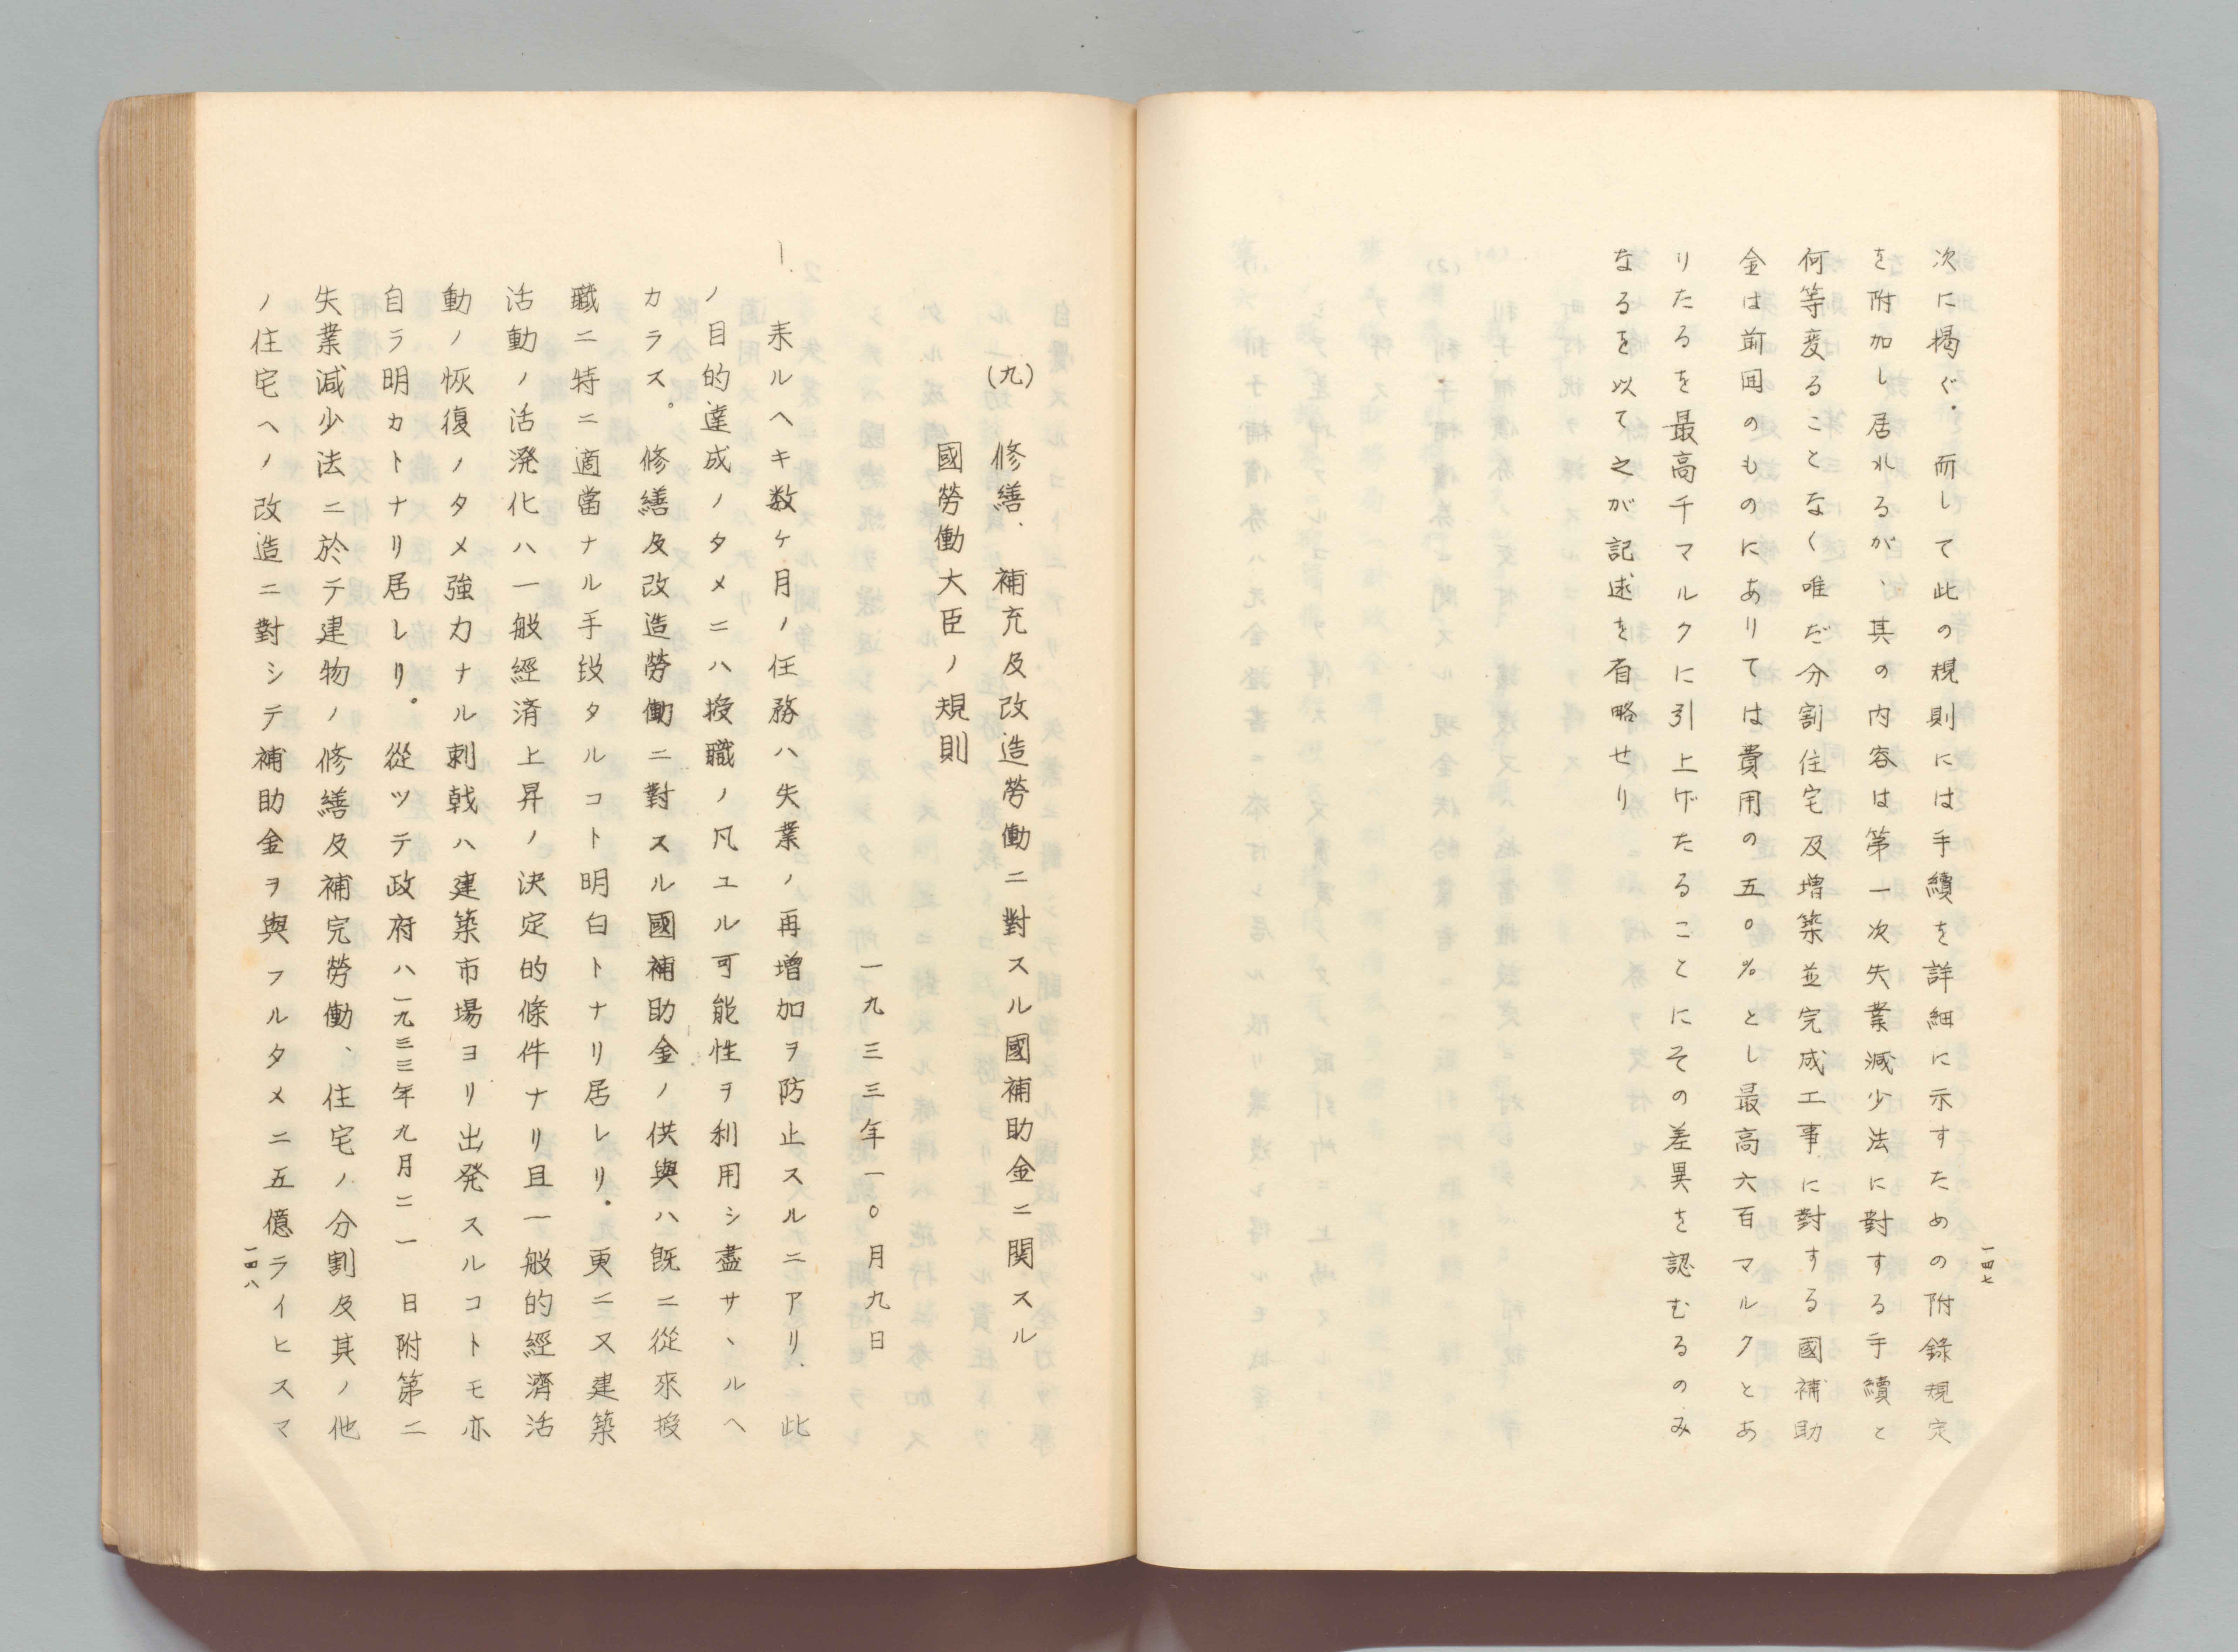 次に掲ぐ．而して此の規則には手續を詳細に示すための附錄規定
を附加し居れるが、其の内容は第一次失業減少法に對する手續と
何等変ることなく唯だ分割住宅及増築並完成工事に對する國補助
金は前囬のものにありては費用の五〇％とし最高六百マルクとあ
りたるを最高千マルクに引上げたることにその差異を認むるのみ
なるを以て之が記述を省略せり
一四七
(九)　修繕、補充及改造勞働ニ對スル國補助金ニ関スル
國勞働大臣ノ規則
一九三三年一〇月九日
1.　来ルヘキ数ケ月ノ任務ハ失業ノ再増加ヲ防止スルニアリ、此
ノ目的達成ノタメニハ授職ノ凡ユル可能性ヲ利用シ盡サヽルヘ
カラス。修繕及改造勞働ニ對スル國補助金ノ供與ハ既ニ從來授
職ニ特ニ適當ナル手段タルコト明白トナリ居レリ．更ニ又建築
活動ノ活溌化ハ一般經済上昇ノ決定的條件ナリ且一般的經濟活
動ノ恢復ノタメ強力ナル刺戟ハ建築市場ヨリ出発スルコトモ亦
自ラ明カトナリ居レリ。從ツテ政府ハ一九三三年九月二一日附第二
失業減少法ニ於テ建物ノ修繕及補完勞働、住宅ノ分割及其ノ他
ノ住宅ヘノ改造ニ對シテ補助金ヲ與フルタメニ五億ライヒスマ
一四八